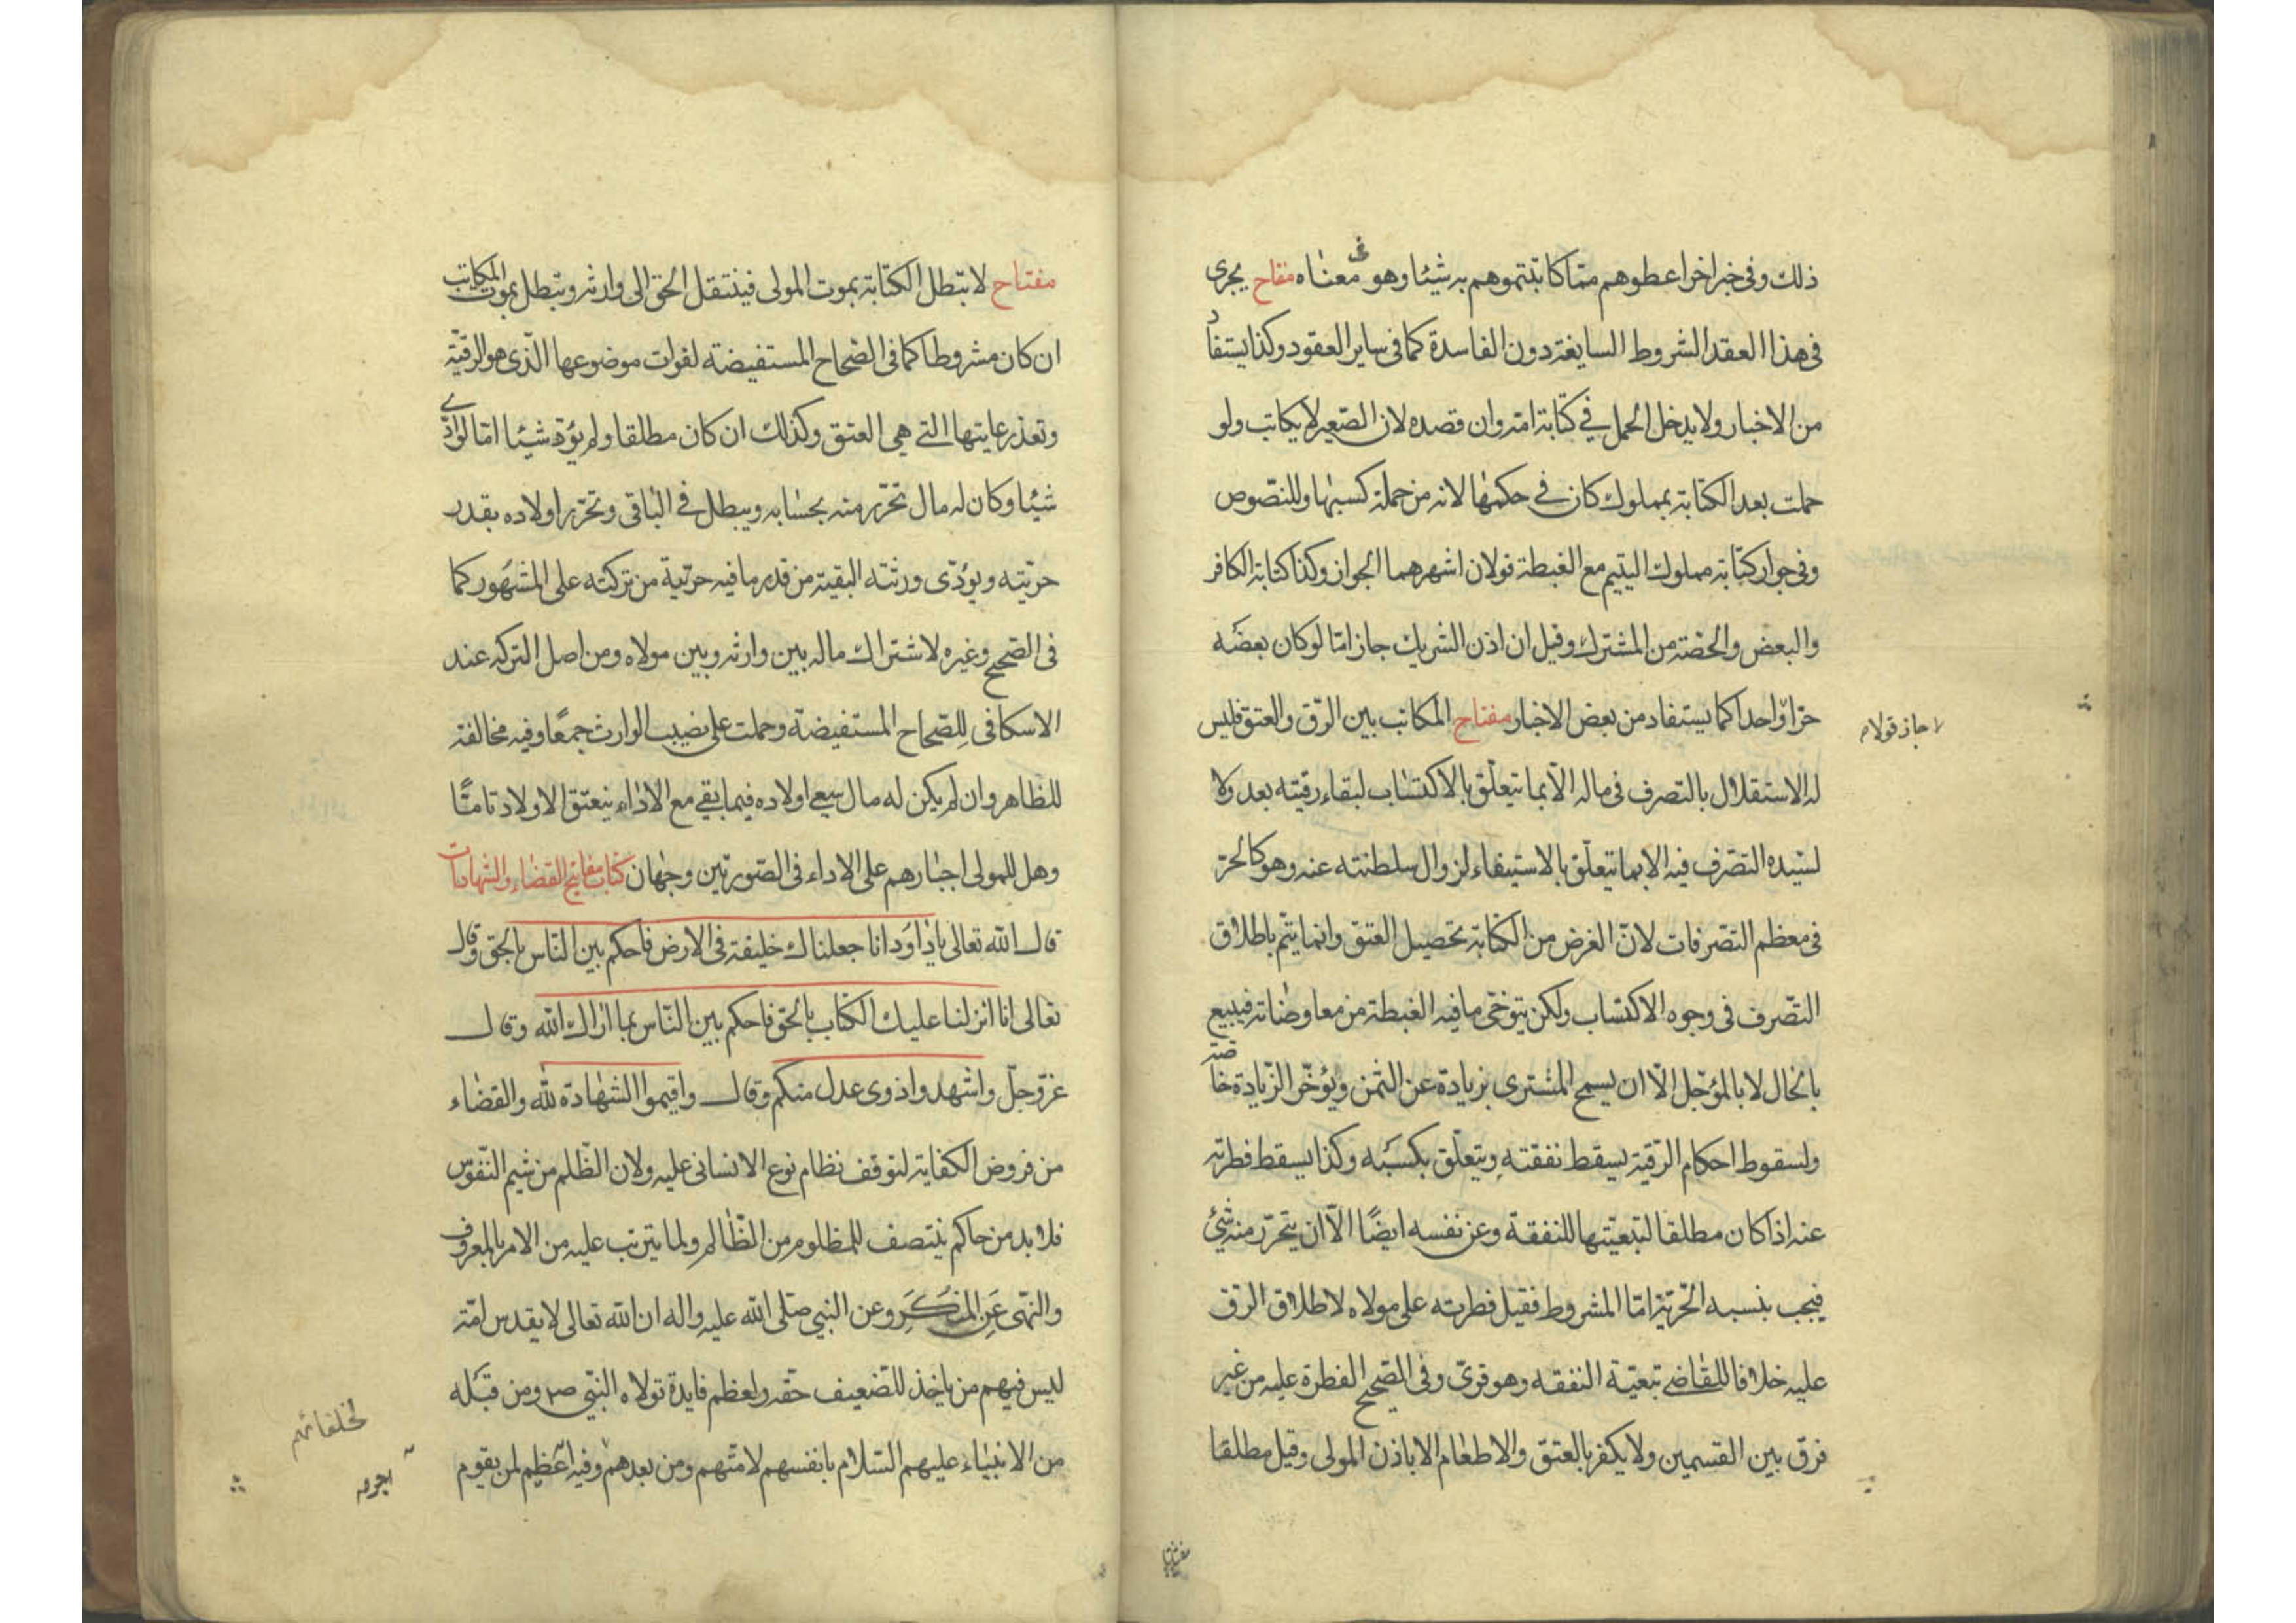 ذلك وفى خبر اخر اعطوهم مما كاتبتموهم به شيئا وهو فى معناه مفتاح يجرى
فى هذا العقد الشروط السايغة دون الفاسدة كما فى ساير العقود وكذا يستفاد
من الاخبار ولا يدخل الحمل في كتابة امته وان قصده لان الصغير لا يكاتب ولو
حملت بعد الكتابة بمملوك كان في حكمها لانه من جملة كسبها وللنصوص
وفى جواز كتابة مملوك اليتيم مع الغبطة قولان اشهرهما الجواز وكذا كتابة الكافر
والبعض والحصة من المشترك وقيل ان اذن الشريك جاز امّا لو كان بعضه
حرّا واحدا كما يستفاد من بعض الاخبار مفتاح المكاتب بين الرّق والعتق فليس
جاز قولا م
له الاستقلال بالتصرف فى ماله الّا بما يتعلّق بالاكتساب لبقاء رقيته بعد ولا
لسيّده التصّرف فيه الا بما يتعلّق بالاستيفاء لزوال سلطنته عنه وهو كالحرّ
فى معظم التصّرفات لانّ الغرض من الكتابة تحصيل العتق وانما يتم باطلاق
التصّرف فى وجوه الاكتساب ولكن يتوخّى ما فيه الغبطة من معاوضاته فيبيع
بالحال لا بالمؤجّل الّا ان يسمح المشترى بزيادة عن الثمن ويؤخّر الزّيادة خاصة
ولسقوط احكام الرّقية يسقط نفقته ويتعلّق بكسبه وكذا يسقط فطرته
عنه اذا كان مطلقا لتبعيّتها للنفقة وعن نفسه ايضًا الّا ان يتحرّر منه شئ
فيجب بنسبه الحرّية امّا المشروط فقيل فطرته على مولاه لاطلاق الرّق
عليه خلافا للقاضي تبعيّة النفقه وهو قوىّ وفى الصّحيح الفطرة عليه من غير
فرق بين القسمين ولا يكفر بالعتق والاطعام الا باذن المولى وقيل مطلقا
مفتاح لا تبطل الكتابة بموت المولى فينتقل الحق الى وارثه وتبطل بموت المكاتب
ان كان مشروطا كما فى الصّحاح المستفيضة لفوات موضوعها الّذى هو الرقيّة
وتعذر غايتها التي هي العتق وكذلك ان كان مطلقا ولم يؤدّ شيئا امّا لو ادّى
شيئا وكان له مال تحرّر منه بحسابه ويبطل في الباقى وتحرّر اولاده بقدر
حرّيته ويؤدّى ورثته البقية من قدر ما فيه حرّية من تركته على المشهور كما
فى الصّحيح وغيره لاشتراك ماله بين وارثه وبين مولاه ومن اصل التركه عند
الاسكافى للصّحاح المستفيضة وحملت على نصيب الوارث جمعًا وفيه مخالفة
للظاهر وان لم يكن له مال سعى اولاده فيما بقي مع الاداء ينعتق الاولاد تامّا
وهل للمولى اجبارهم على الاداء فى الصّورتين وجهان كتاب مفاتيح القضاء والشهادات
قال الله تعالى ياداوُد انا جعلناك خليفة فى الارض فاحكم بين النّاس بالحق وقال
تعالى انا انزلنا عليك الكتاب بالحق فاحكم بين النّاس بما اراك الله وقال
عزّ وجلّ واشهدوا ذوى عدل منكم وقال واقيموا الشهادة للّه والقضاء
من فروض الكفاية لتوقف نظام نوع الانسانى عليه ولان الظّلم من شيم النّفوس
فلا بد من حاكم ينتصف للمظلوم من الظّالم ولما يترتب عليه من الامر بالمعروف
والنهّى عَن المنكَرِ وعن النبي صلّى الله عليه واله ان الله تعالى لا يقدس امّة
ليس فيهم من ياخذ للضّعيف حقه ولعظم فايدة تولاه النبّي ص ومن قبله
من الانبيآء عليهم السّلام بانفسهم لامّتهم ومن بعدهم وفيه اعظيم لمن يقوم
لخلفائهم
اجر م